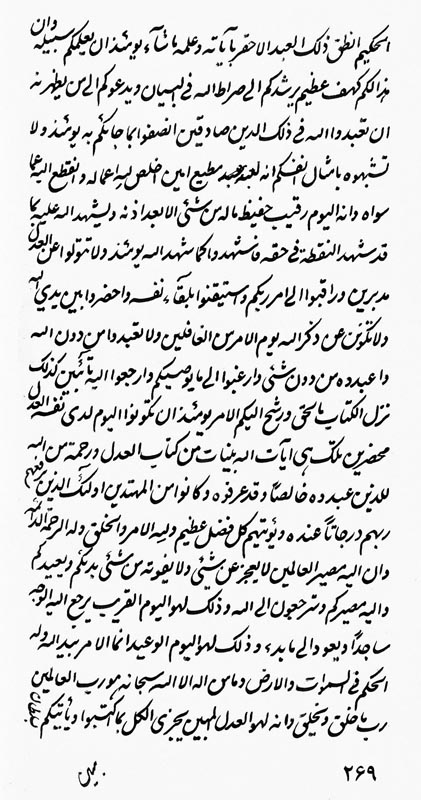 الحكيم انطق ذلك العبد الاحقر بآياته وعلمه ما شآء يومئذ ان يعلمكم سبيله وان
هذا لكم كهف عظيم يرشدكم الى صراط الله في البيان ويدعوكم الى من يظهرنه
ان تعبدوا الله في ذلك الدين صادقين انصفوا بما جائكم به يومئذ ولا
تشبهوه بامثال انفسكم انه لعبد مطيع امين خلص لله اعماله وانقطع اليه عما
سواه وانه اليوم رقيب حفيظ ما له من شئ الا بعد اذنه وليشهد الله عليه كما
قد شهد النقطة في حقه فاشهدوا كما شهد الله يومئذ ولا تولوا عن العدل
مدبرين وراقبوا الى امر ربكم واستيقنوا بلقآء نفسه واحضروا بين يدي الله
ولا تكونن عن ذكر الله يوم الامر من الغافلين ولا تعبدوا من دون الله
واعبدوه من دون شئ وارغبوا الى ما يوصيكم وارجعوا اليه تائبين كذلك
نزل الكتاب بالحق ورشح اليكم الامر يومئذ ان تكونوا اليوم لدى نفسه العدل
محضرين تلك هي آيات الله بينات من كتاب العدل ورحمة من الله
للذين عبدوه خالصا وقد عرفوه وكانوا من المهتدين اولئك الذين
ربهم درجاتا عنده ويؤتيهم كل فضل عظيم وله الامر والخلق وله الرحمة
وان اليه مصير العالمين لا يعجز عن شئ ولا يفوته من شئ بدئكم ويعيدكم
واليه مصيركم وترجعون الى الله وذلك لهو اليوم القريب يرجع اليه الوجه
ساجدا ويعود الى ما بدء وذلك لهو اليوم الوعيد انما الامر بيد الله وله
الحكم في السموات والارض وما من اله الا الله سبحانه هو رب العالمين
رب ما خلق ويخلق وانه لهو العدل المهيمن يجزي الكل بما اكتسبوا ويأتيكم
۲۶۹